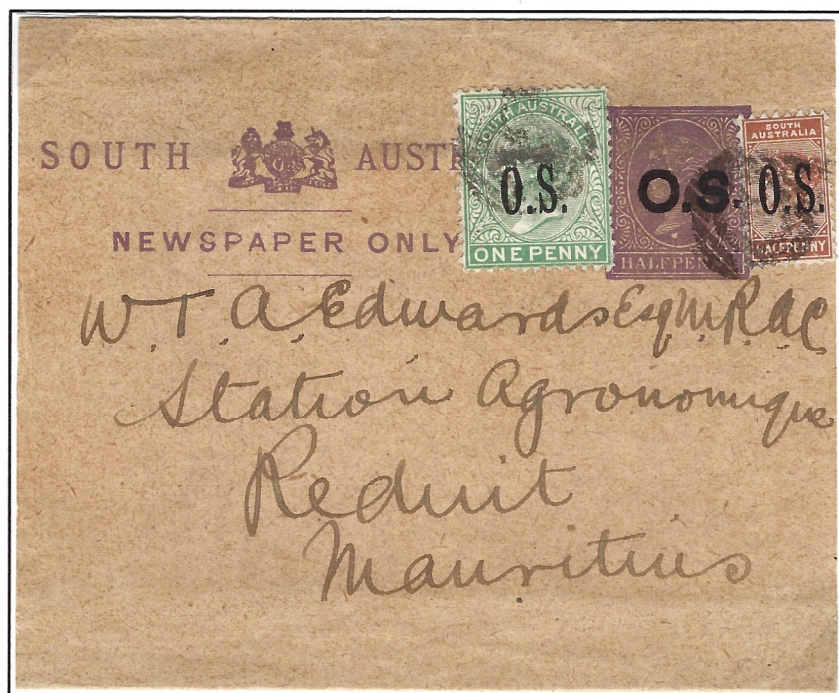 SOUTH AUSTR
NEWSPAPER ONLY
SOUTH AUSTRALIA
O.S.
ONE PENNY
O.S.
HALFPENNY
SOUTH
AUSTRALIA
O.S.
HALFPENNY
W. T. A. Edwards Esq M.R.A.C
Station Agronomique
Reduit
Mauritius